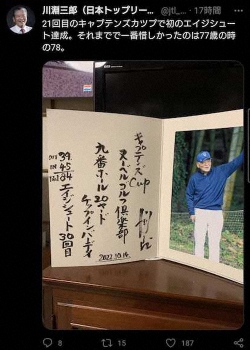 川淵三郎（日本トップリー... @jtl_... · 17時間
21回目のキャプテンズカップで初のエイジシュート達成。それまでで一番惜しかったのは77歳の時の78。
キャプテンズCup
スペルゴルフ倶楽部
九番ホール20ヤード
チップインバーディ
2022.10.14.
OUT 39
IN 45
84
エイジシュート30回目
8
15
187